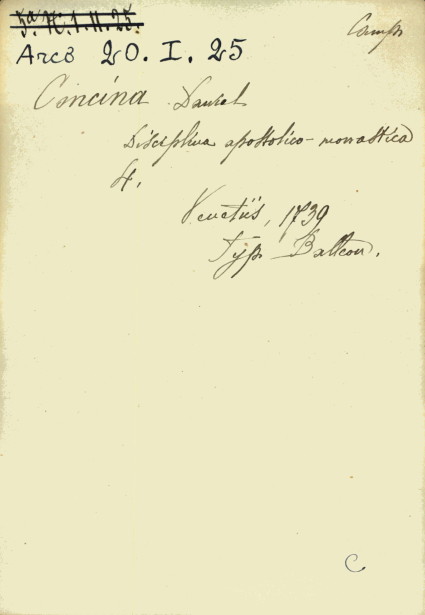 5a H. 1. 11. 25.
Camp
Arcb 20. I. 25
Concina Daniel
Disciplina apostolico-monastica
4.
Venetiis, 1739
Typ Balleon.
C